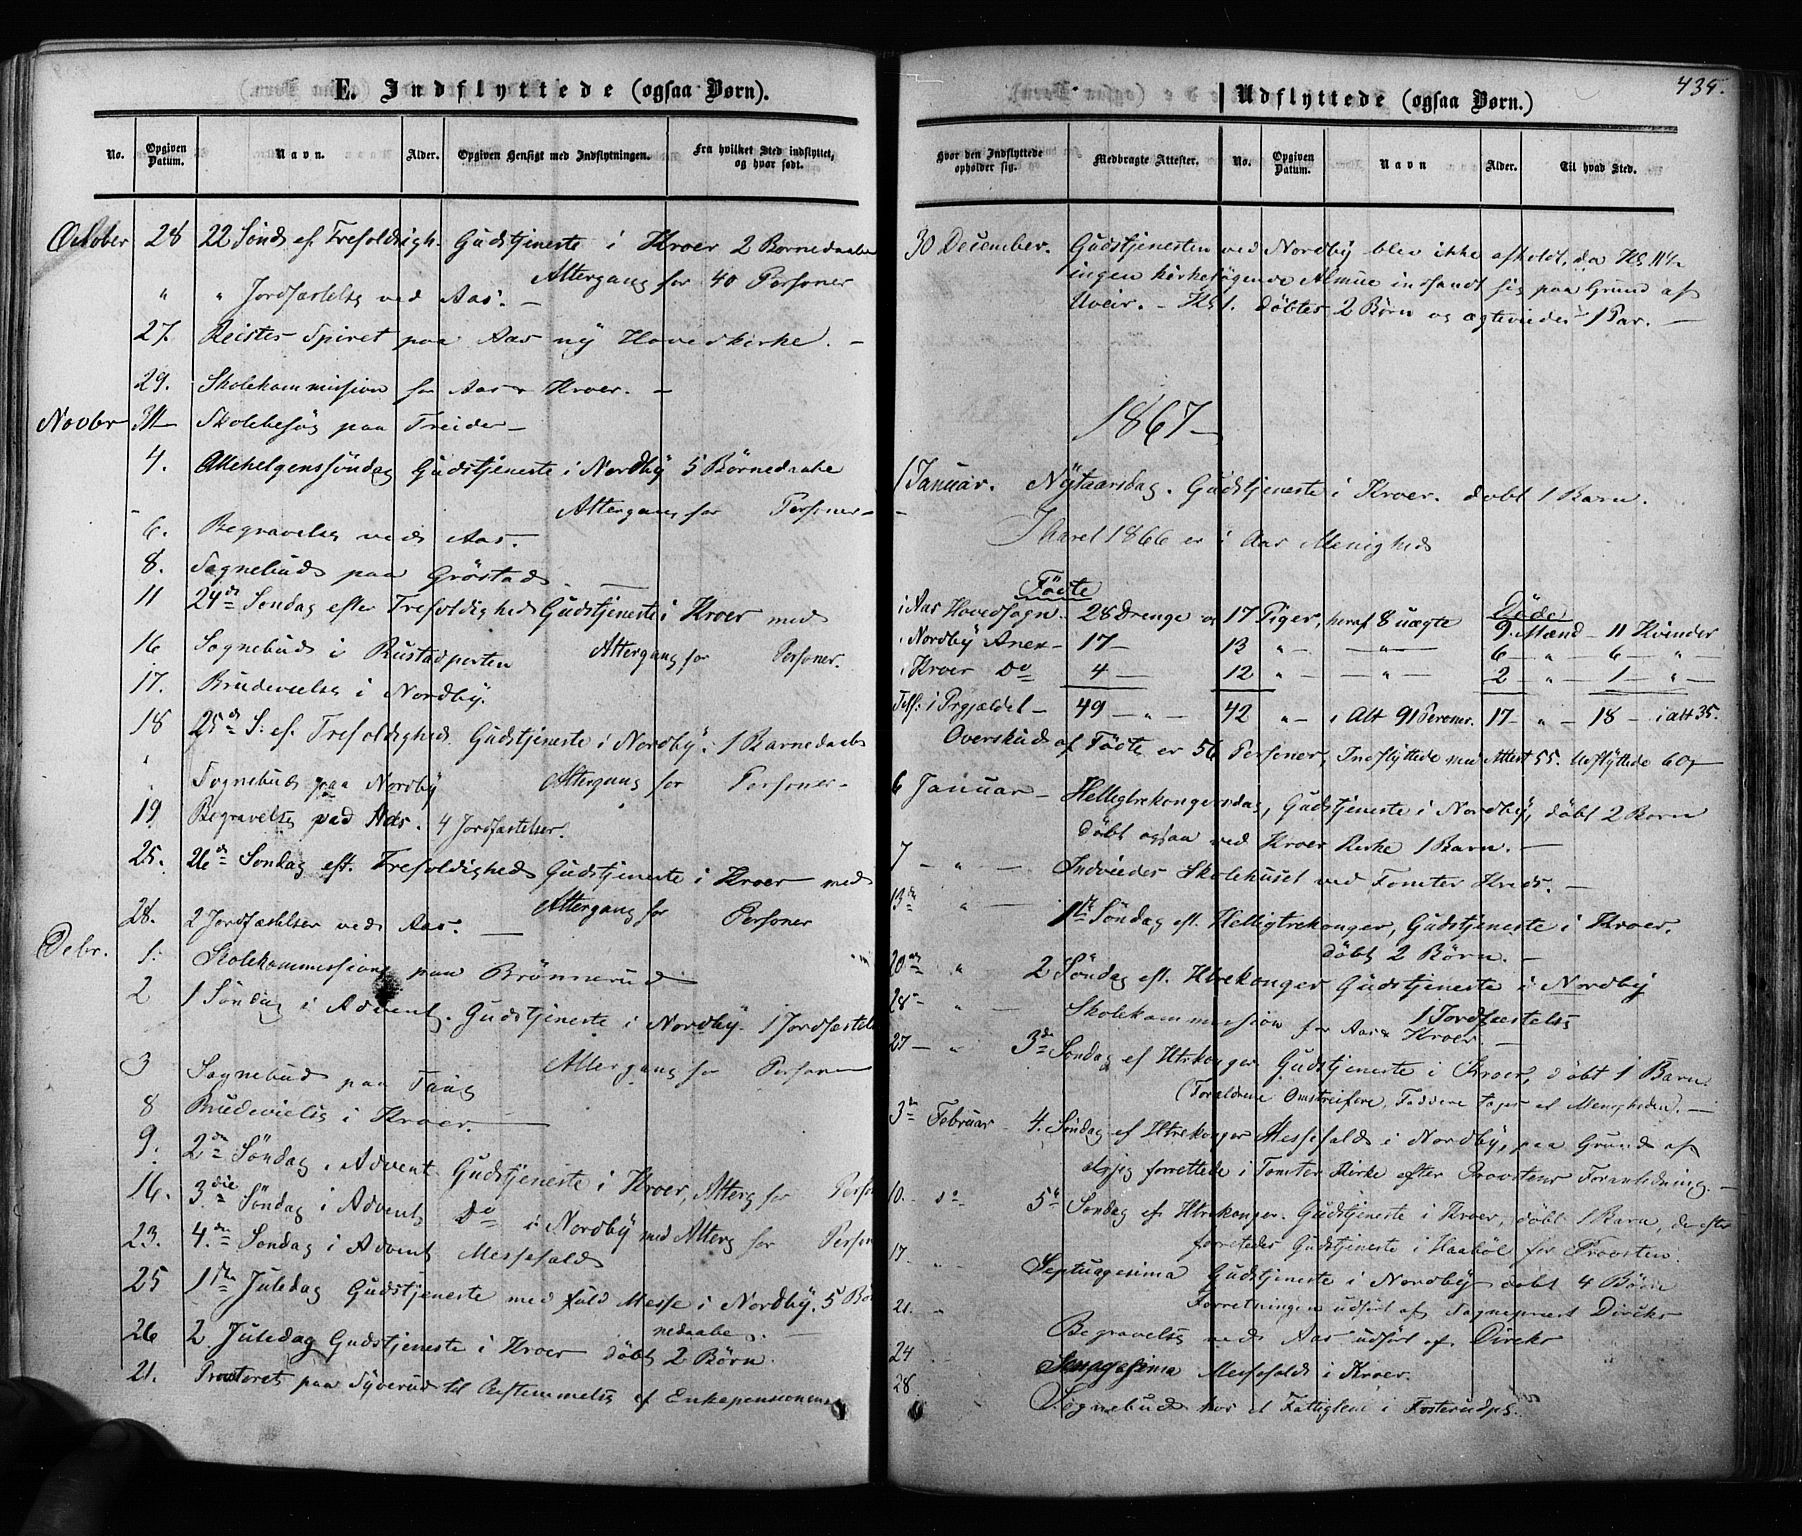 E. Indflyttede (ogsaa Børn).
No. Opgiven Datum. Navn. Alder. Opgiven Hensigt med Indflytningen. Fra hvilket Sted indflyttet, og hvor født.
October 28 22 Sönds ef. Trefoldsigh. Gudstjeneste i Kroer 2 Börnedaabe
Altergang for 40 Personer
" " Jordfæstelse ved Aas. —
27. Reistes Spiret paa Aas ny Hovedkirke. —
29. Skolekommission for Aas & Kroer. —
Novbr Skolebesög paa Treider —
4. Allehelgenssöndag Gudstjeneste i Nordby 5 Börnedaabe
Altergang for Personer —
6. Begravelse ved Aas.
8. Sognebud paa Gröstad. —
11 24de Söndag efter Trefoldighed Gudstjeneste i Kroer med
Altergang for Personer.
16 Sognebud i Rustadporten
17. Brudevielse i Nordby.
18 25de S. ef. Trefoldighed Gudstjeneste i Nordby. 1 Barnedaab
Altergang for Personer —
" Sognebud paa Nordby
19 Begravelse ved Aas. 4 Jordfæstelser.
25. 26de Söndag eft. Trefoldighed Gudstjeneste i Kroer med
Altergang for Personer
28. 2 Jordfæstelser ved Aas. —
Debr. 1. Skolekommission paa Brönnerud
2 1 Söndag i Advent. Gudstjeneste i Nordby. 1 Jordfæstel
Altergang for Persone
3 Sognebud paa Taug
8 Brudevielse i Kroer. —
9. 2de Söndag i Advent Gudstjeneste i Kroer, Alterg for Perso
16. 3die Söndag i Advent Do i Nordby med Alterg for Person
23. 4de Söndag i Advent Messefald
25 1ste Juledag Gudstjeneste med fuld Messe i Nordby. 5 Bör
nedaabe. —
26 2. Juledag Gudstjeneste i Kroer döbt 2 Börn.
21. paa Syverud til Bestemmelse af Enkepensionen
Udflyttede (ogsaa Børn.)
435.
Hvor den Indflyttede opholder sig. Medbragte Attester. No. Opgiven Datum. Navn Alder. Til hvad Sted.
30 December. Gudstjenesten ved Nordby blev ikke afholdt, da Kl 11½
ingen kirkesögende Almue indfandt sig paa Grund af
Uveir. — Kl 1. döbtes 2 Börn og ægteviedes 1 Par. —
1867 —
1 Januar. Nytaarsdag. Gudstjeneste i Kroer. döbt 1 Barn.
I Aaret 1866 er i Aas Menighed
Födte
Döde
i Aas Hovedsogn. 28 Drenge og 17 Piger, heraf 8 uægte 9 Mænd — 11 Kvinder
i Nordby Anex — 17 — 13 " — " — 6 — " 6 — " —
i Kroer Do 4 — 12 " — " — 2 — " — 1 — " —
Tils. i Prgjældet — 49 — " — 42 " — i Alt 91 Personer. 17 — " — 18 — i alt 35.
Overskud af Födte er 56 Personer, Indflyttede med Attest 55. Udflyttede 60 —
6 Januar — Helligtrekongersdag, Gudstjeneste i Nordby, döbt 2 Börn
döbt ogsaa ved Kroer Kirke 1 Barn. —
7 — " — Indviedes Skolehuset ved Tomter Kreds. —
13de " — 1ste Söndag eft. Helligtrekonger, Gudstjeneste i Kroer.
döbt 2 Börn. —
20de " 2 Söndag eft. Htrekonger Gudstjeneste i Nordby
1 Jordfæstelse
" Skolekommission for Aas & Kroer. —
27 — " 3de Söndag ef Htrekonger Gudstjeneste i Kroer, döbt 1 Barn.
(Forældrene Omstreifere, Faddere tages af Menigheden). —
3de Februar 4. Söndag ef Htrekonger Messefald i Nordby, paa Grund af
at jeg forrettede i Tomter Kirke efter Provstens Foranledning. —
10. do 5te Söndag ef Htrekonger. Gudstjeneste i Kroer, döbt 1 Barn, derefter
forrettedes Gudstjeneste i Haaböl for Provsten.
17. " Septuagesima Gudstjeneste i Nordby döbt 4 Börn
Forretningen udført af Sognepræst Dircks
21. " Begravelse ved Aas udfört af Dircks
24 Sexagesima Messefald i Kroer.
28 Sognebud hos et Fattiglem i Fosterudpl.